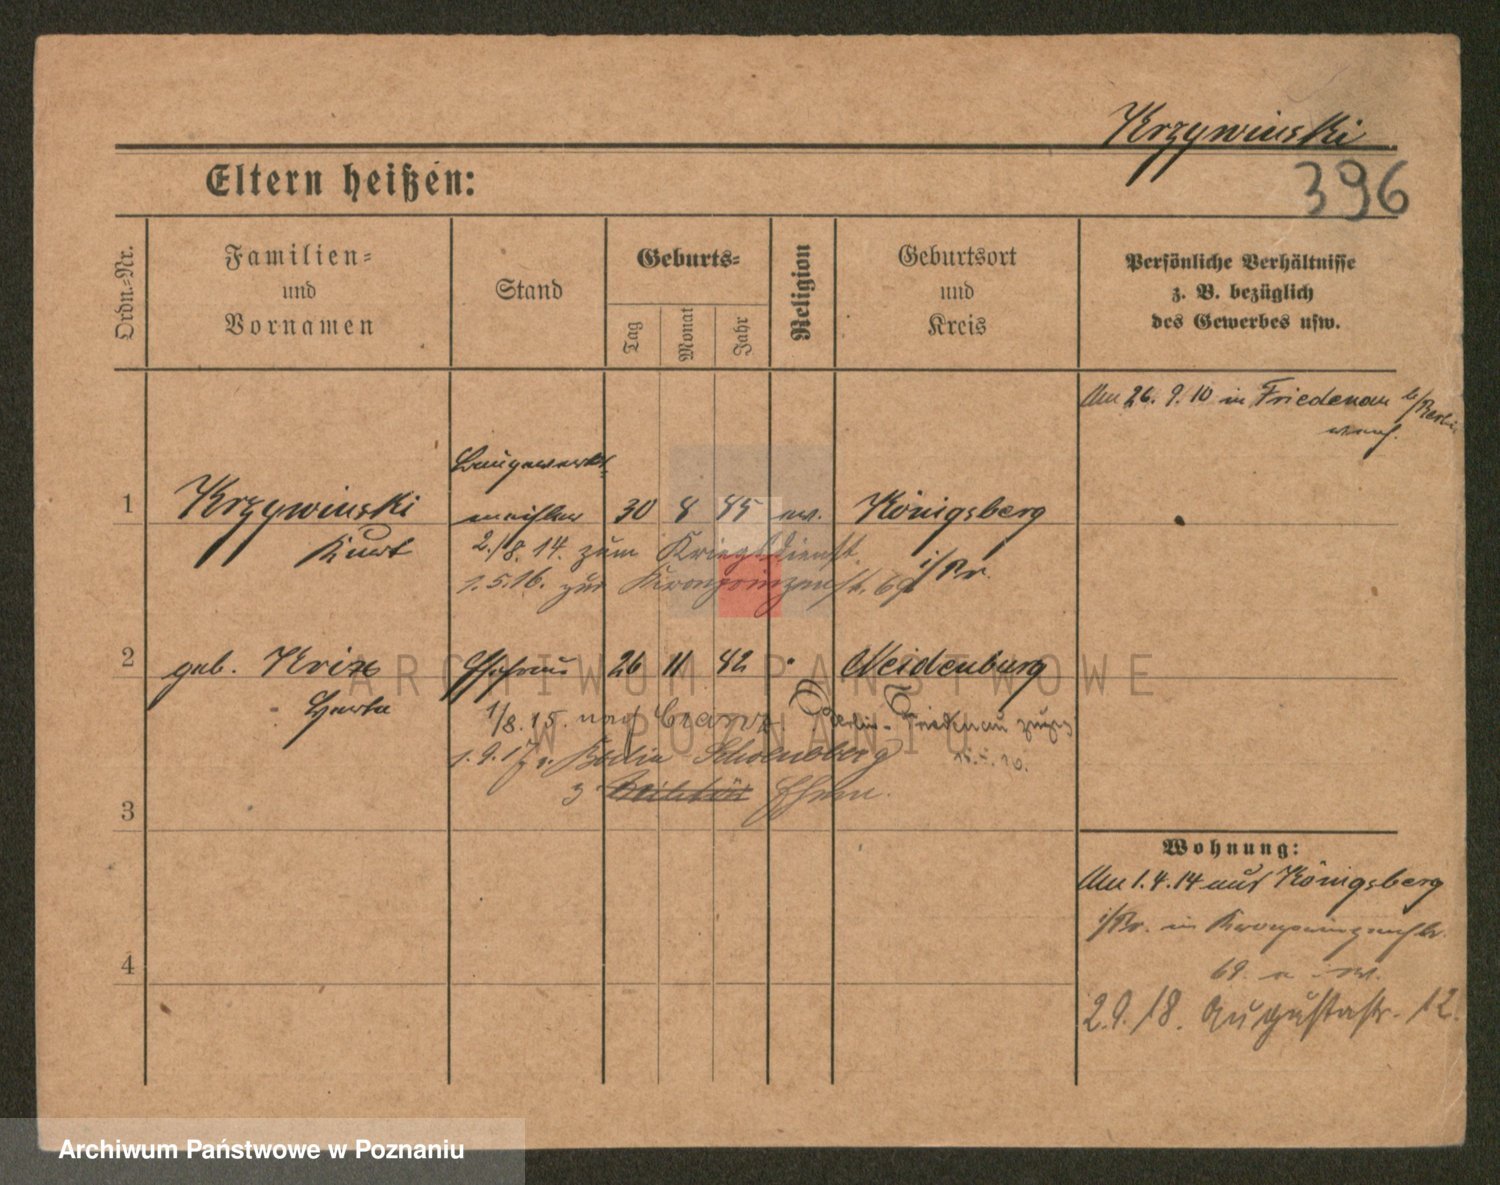 Krzywinski
396
Eltern heißen:
Ordn.-Nr.
Familien-
und
Vornamen
Stand
Geburts-
Tag
Monat
Jahr
Religion
Geburtsort
und
Kreis
Persönliche Verhältnisse
z. B. bezüglich
des Gewerbes usw.
Am 26. 9. 10 in Friedenau b/Berlin
Baugewerks-
1 Krzywinski meister 30 8 85 ev. Königsberg
Kurt i/Pr.
2./8. 14. zum Kriegsdienst
1.5.16. zur Kronprinzenstr. 69
2 geb. Krix Ehefrau 26 11 82 Neidenburg
Herta
1/8. 15. nach Cranz Berlin-Friedenau
1.9.17 v. Berlin Schoenberg
z. Ehem.
3
4
Wohnung:
Am 1.4.14 aus Königsberg
i/Pr. in Kronprinzenstr.
69.
2.9.18. Augustastr. 12.
ARCHIWUM PAŃSTWOWE
W POZNANIU
Archiwum Państwowe w Poznaniu